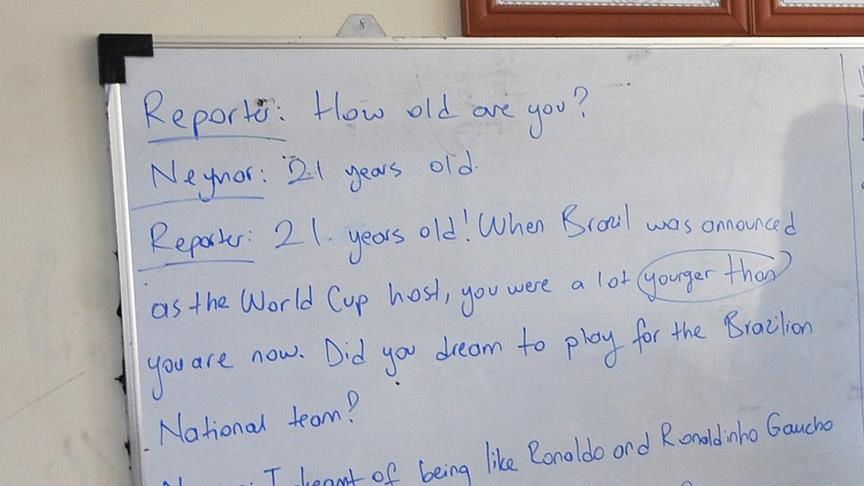 Reporter: How old are you?
Neymar: 21 years old.
Reporter: 21 years old! When Brazil was announced
as the World Cup host, you were a lot younger than
you are now. Did you dream to play for the Brazilian
National team?
I dreamt of being like Ronaldo and Ronaldinho Gaucho